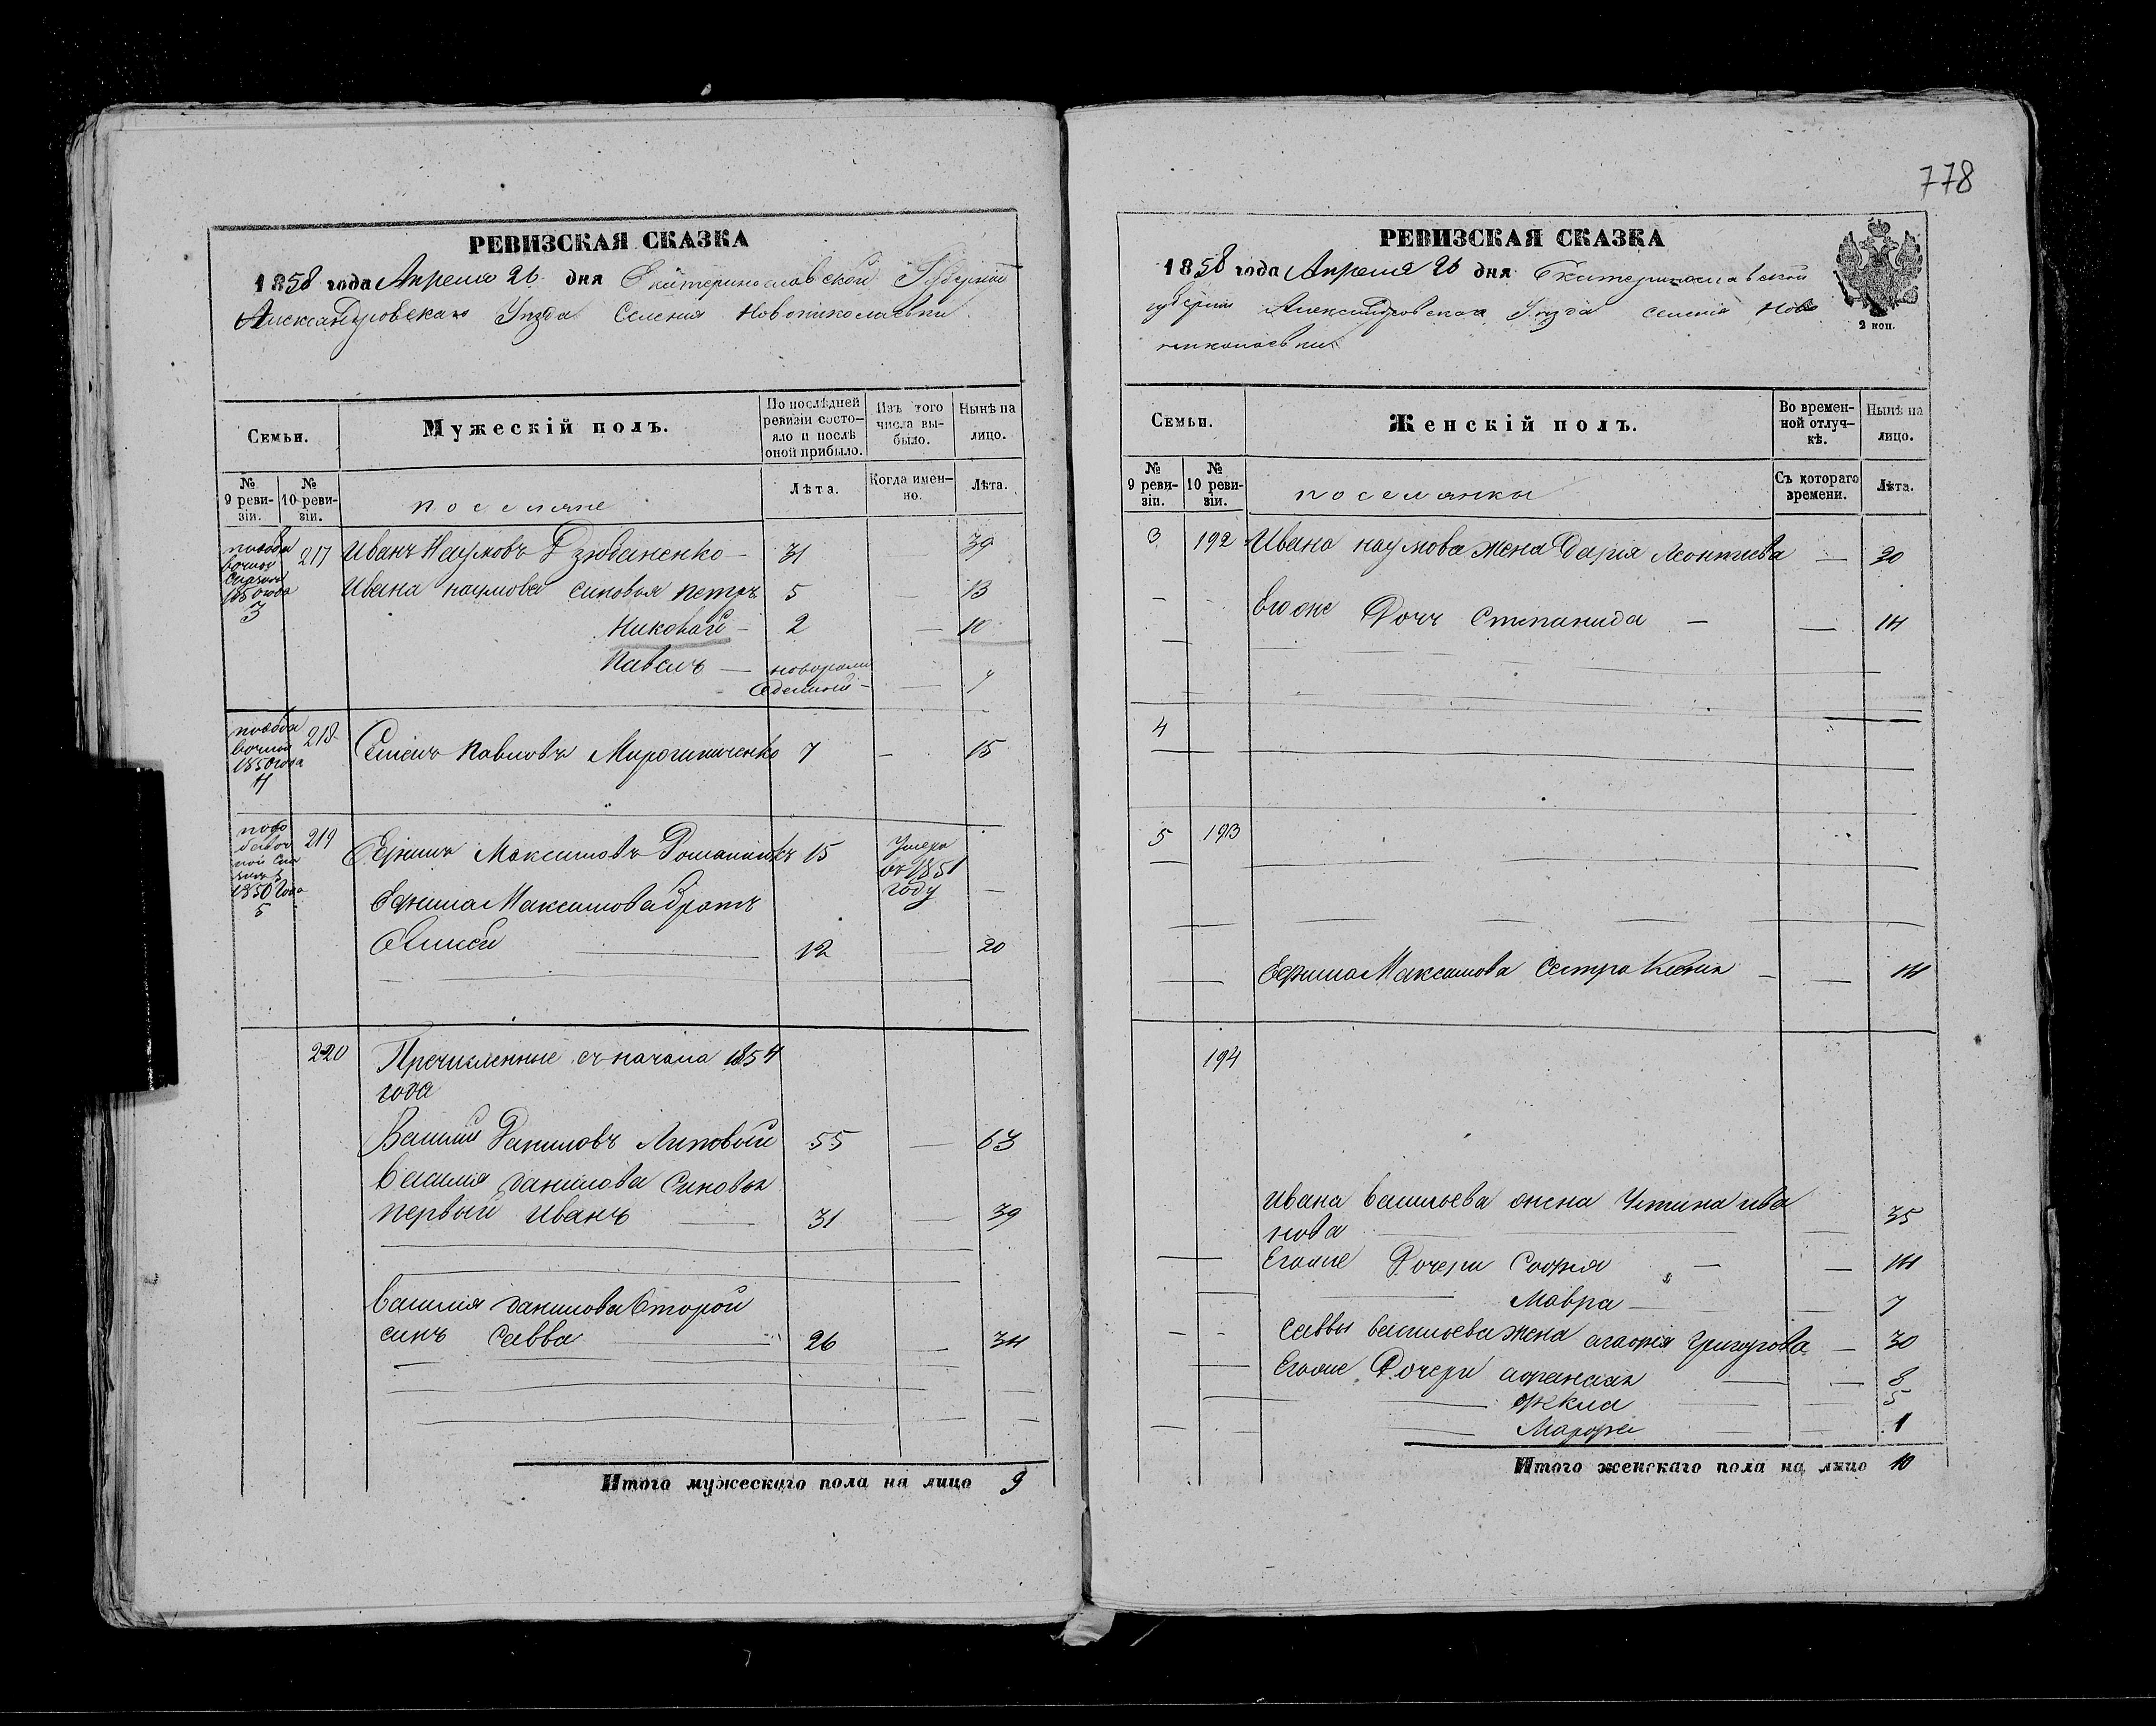 778
РЕВИЗСКАЯ СКАЗКА
1858 года Апреля 26 дня Екатеринославской Губернии
Александровскаго Уезда Селения Новониколаевки
Семьи.
Мужескій полъ.
По послѣдней ревизіи состояло и послѣ оной прибыло.
Изъ того числа выбыло.
Нынѣ на лицо.
№ 9 ревизіи.
№ 10 ревизіи.
поселяне
Лѣта.
Когда именно.
Лѣта.
217 Иванъ Наумовъ Дзюбаненко 31 — 39
3 Ивана наумова синовья петръ 5 — 13
Николай — 2 — 10
Павелъ — —
1850 года
4
218 Павловъ 7 — 15
1850 года
5
219 Ефимъ Максимовъ 15 Умеръ въ 1851 году —
Ефима Максимова братъ
12 — 20
220 Пречисленные съ начала 1854
года
Василий Даниловъ Липовый 55 — 63
Василия данилова Синовья
первый Иванъ — 31 — 39
Василия данилова Второй
синъ Савва — 26 — 34
Итого мужескаго пола на лицо 9
РЕВИЗСКАЯ СКАЗКА
1858 года Апреля 26 дня Екатеринославской
губернии Александровскаго Уезда селения Ново
николаевки
2 коп.
Семьи.
Женскій полъ.
Во временной отлучкѣ.
Нынѣ на лицо.
№ 9 ревизіи.
№ 10 ревизіи.
поселянки
Съ котораго времени.
Лѣта.
3 192 Ивана наумова жена Дарія Леонтиева —
Егоже Дочь Степанида — — 14
4
5 193
Ефима Максимова Сестра — — 14
194
Ивана васильева жена Устина ива
нова — 35
Егоже Дочери Софія — — 14
Мавра — — 7
Саввы васильева жена агафия Григорова — 30
Егоже Дочери — — 8
фекла — — 5
Марфа — — 1
Итого женскаго пола на лицо 10